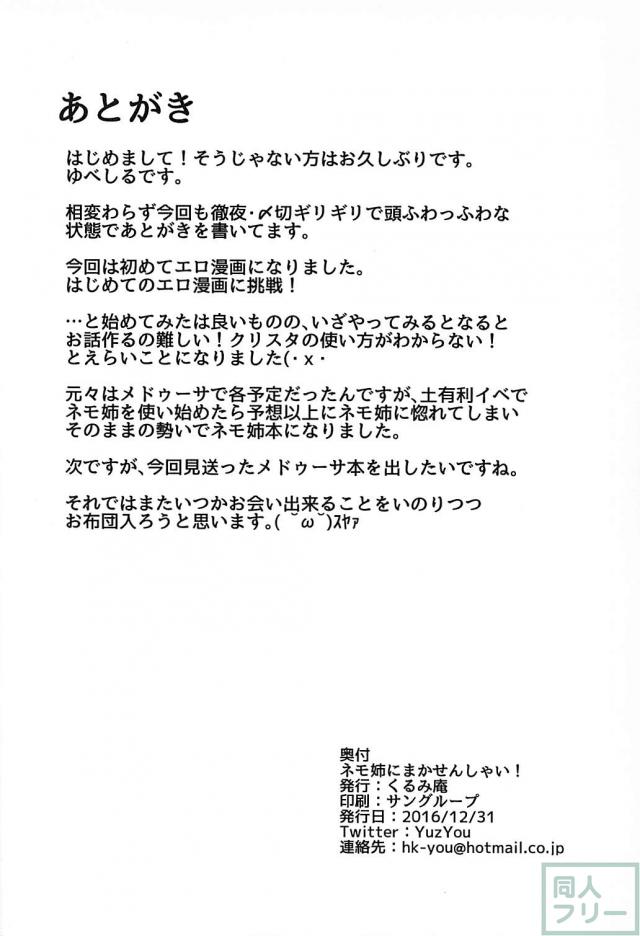 あとがき
はじめまして！そうじゃない方はお久しぶりです。
ゆべしるです。
相変わらず今回も徹夜・〆切ギリギリで頭ふわっふわな
状態であとがきを書いてます。
今回は初めてエロ漫画になりました。
はじめてのエロ漫画に挑戦！
…と始めてみたは良いものの、いざやってみるとなると
お話作るの難しい！クリスタの使い方がわからない！
とえらいことになりました(・ｘ・
元々はメドゥーサで各予定だったんですが、土有利イベで
ネモ姉を使い始めたら予想以上にネモ姉に惚れてしまい
そのままの勢いでネモ姉本になりました。
次ですが、今回見送ったメドゥーサ本を出したいですね。
それではまたいつかお会い出来ることをいのりつつ
お布団入ろうと思います。( ˘ω˘)ｽﾔｧ
奥付
ネモ姉にまかせんしゃい！
発行：くるみ庵
印刷：サングループ
発行日：2016/12/31
Twitter：YuzYou
連絡先：hk-you@hotmail.co.jp
同人
フリー